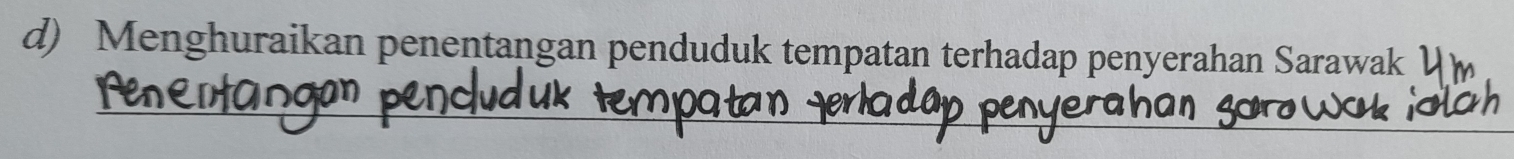 d) Menghuraikan penentangan penduduk tempatan terhadap penyerahan Sarawak 4m
Penentangan penduduk tempatan terhadap penyerahan sarawak ialah